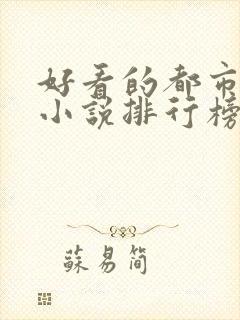 好看的都市
小说排行榜
苏易简